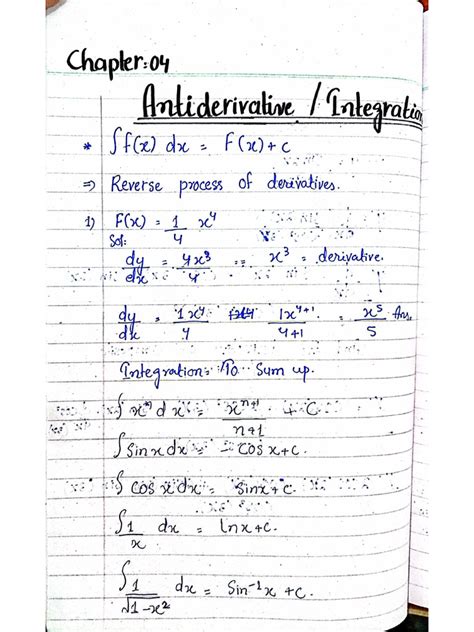 Chapter:04
Antiderivative / Integration
* ∫f(x) dx = F(x)+c
⇒ Reverse process of derivatives.
1) F(x) = 1/4 x⁴
Sol:
dy/dx = 4x³/4 = x³ = derivative.
dy/dx = 1x⁴/4 1x⁴⁺¹/4+1 = x⁵/5 Ans.
Integration: To Sum up.
∫xⁿ dx = xⁿ⁺¹/n+1 + C
∫Sinx dx = -Cosx+c.
∫Cosx dx = Sinx+c.
∫1/x dx = lnx+c.
∫1/√1-x² dx = Sin⁻¹x +c.